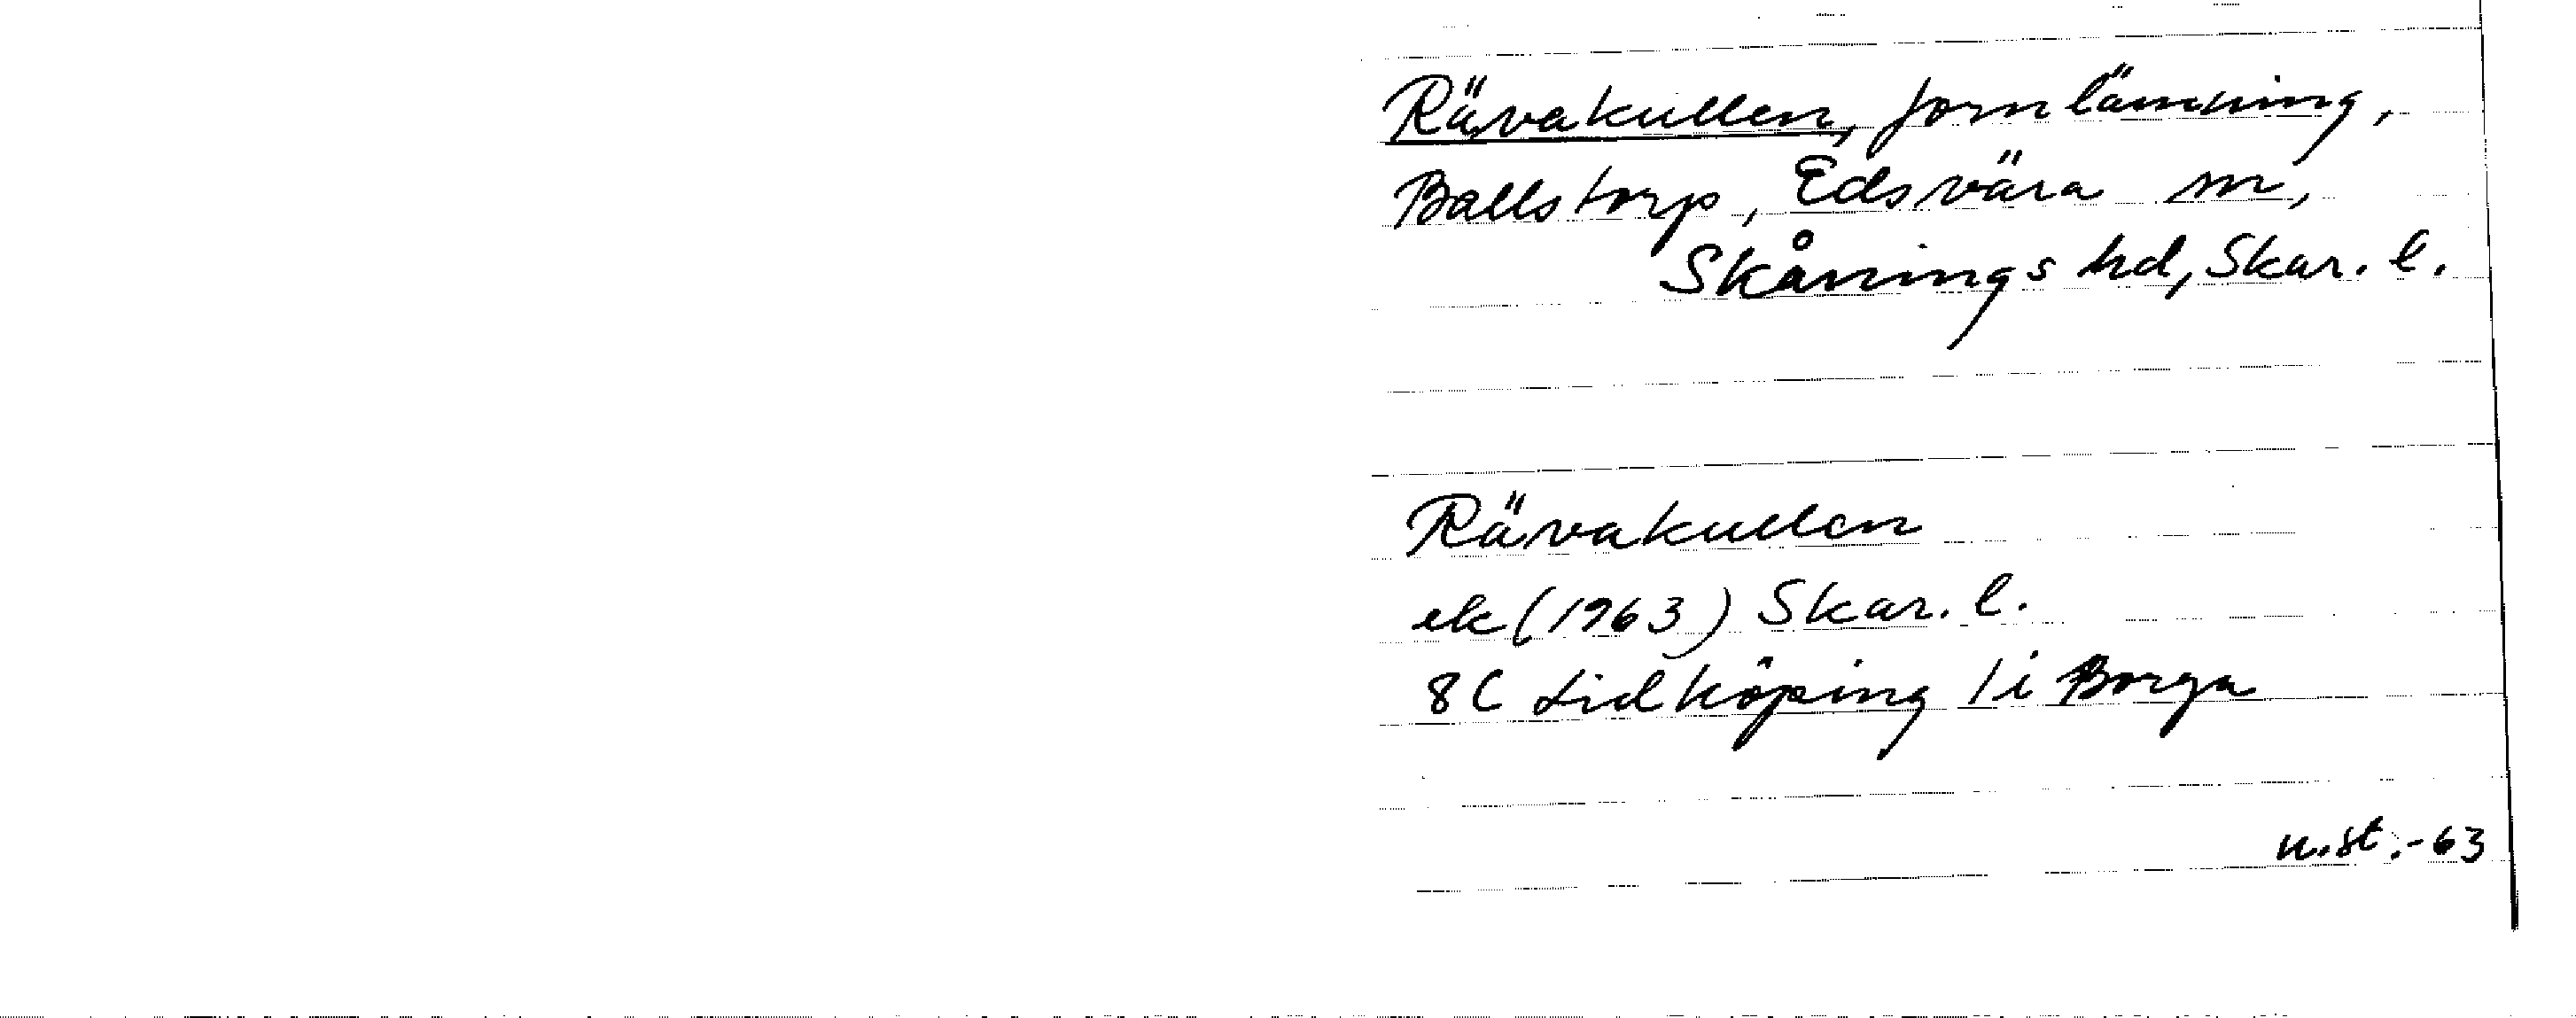 Rävakullen, fornlämning,
Ballstorp, Edsvära sn,
Skånings hd, Skar. l.
Rävakullen
ek (1963) Skar. l.
8C Lidköping 1i Borga
u.st.-63